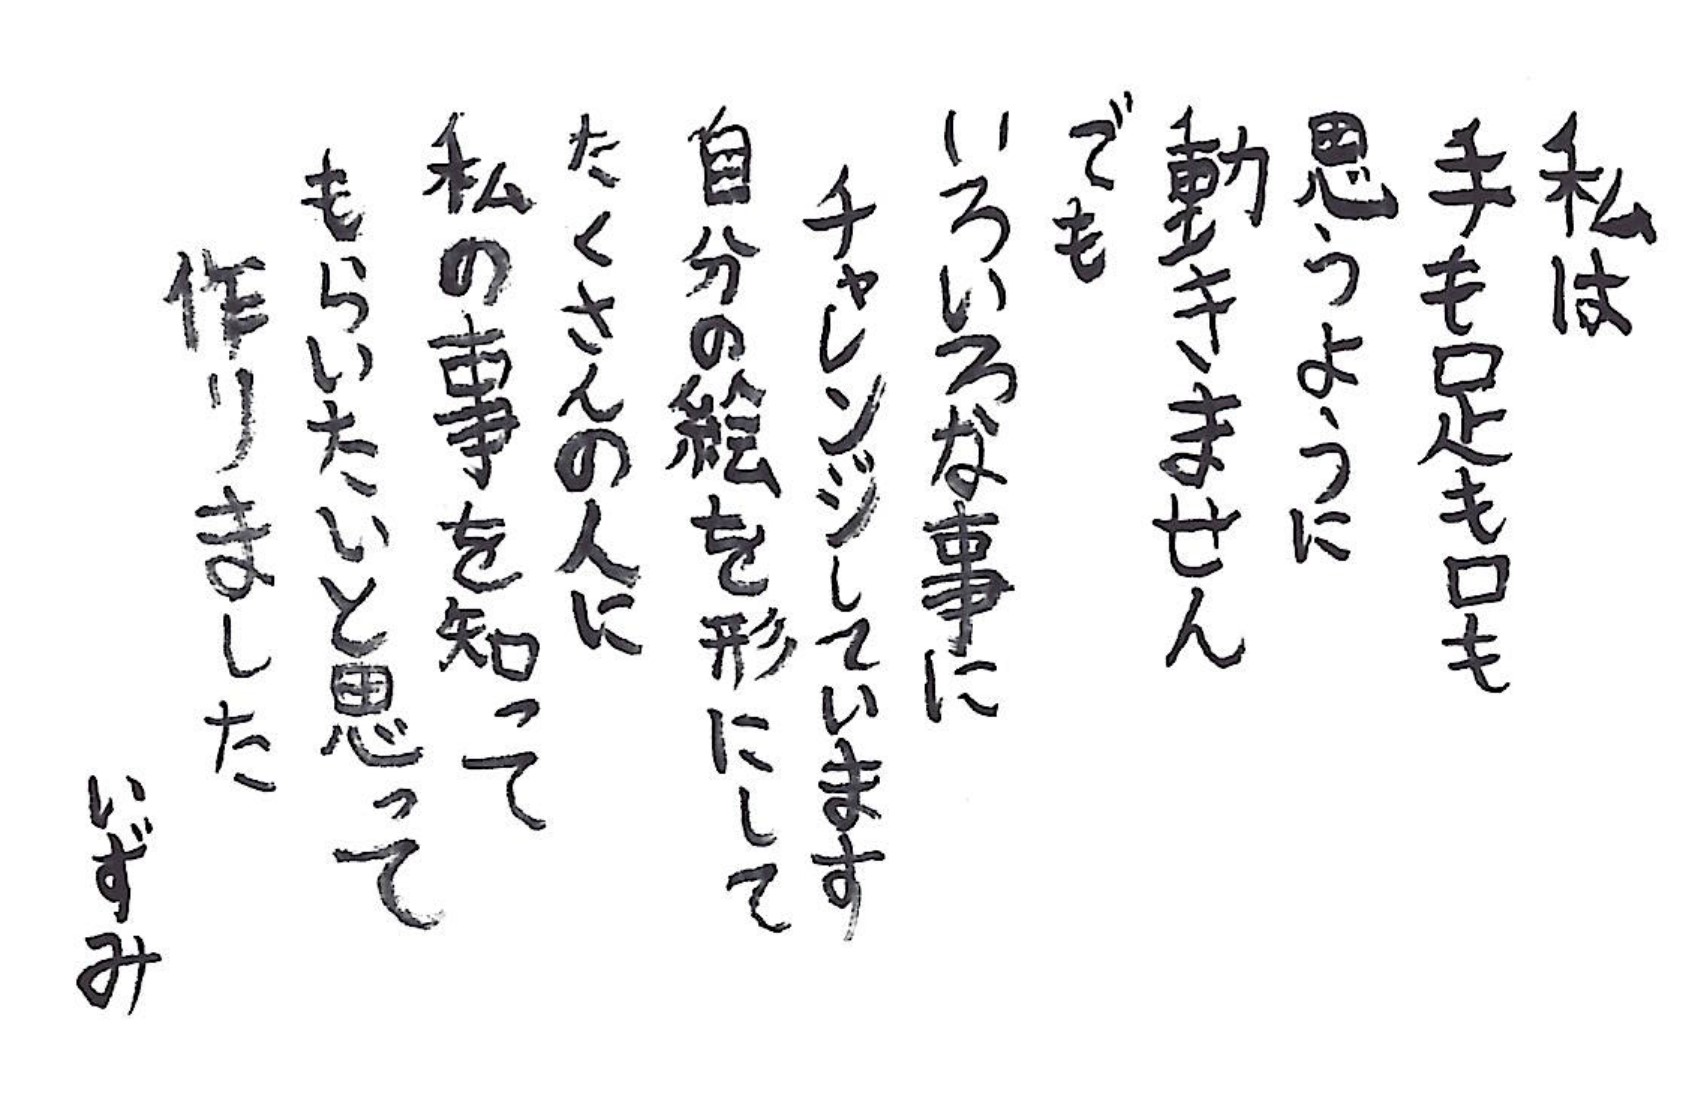 私は
手も足も口も
思うように
動きません
でも
いろいろな事に
チャレンジしています
自分の絵を形にして
たくさんの人に
私の事を知って
もらいたいと思って
作りました
いずみ